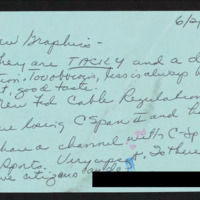 6/2
ew Graphics -
hey are TACKY and a d
ion. Too obvious, less is always b
t, good taste.
New Fed Cable Regulation
re losing C Span II and h
have a channel with C-Sp
Sports. Very upset, Is there
we citizens can do?